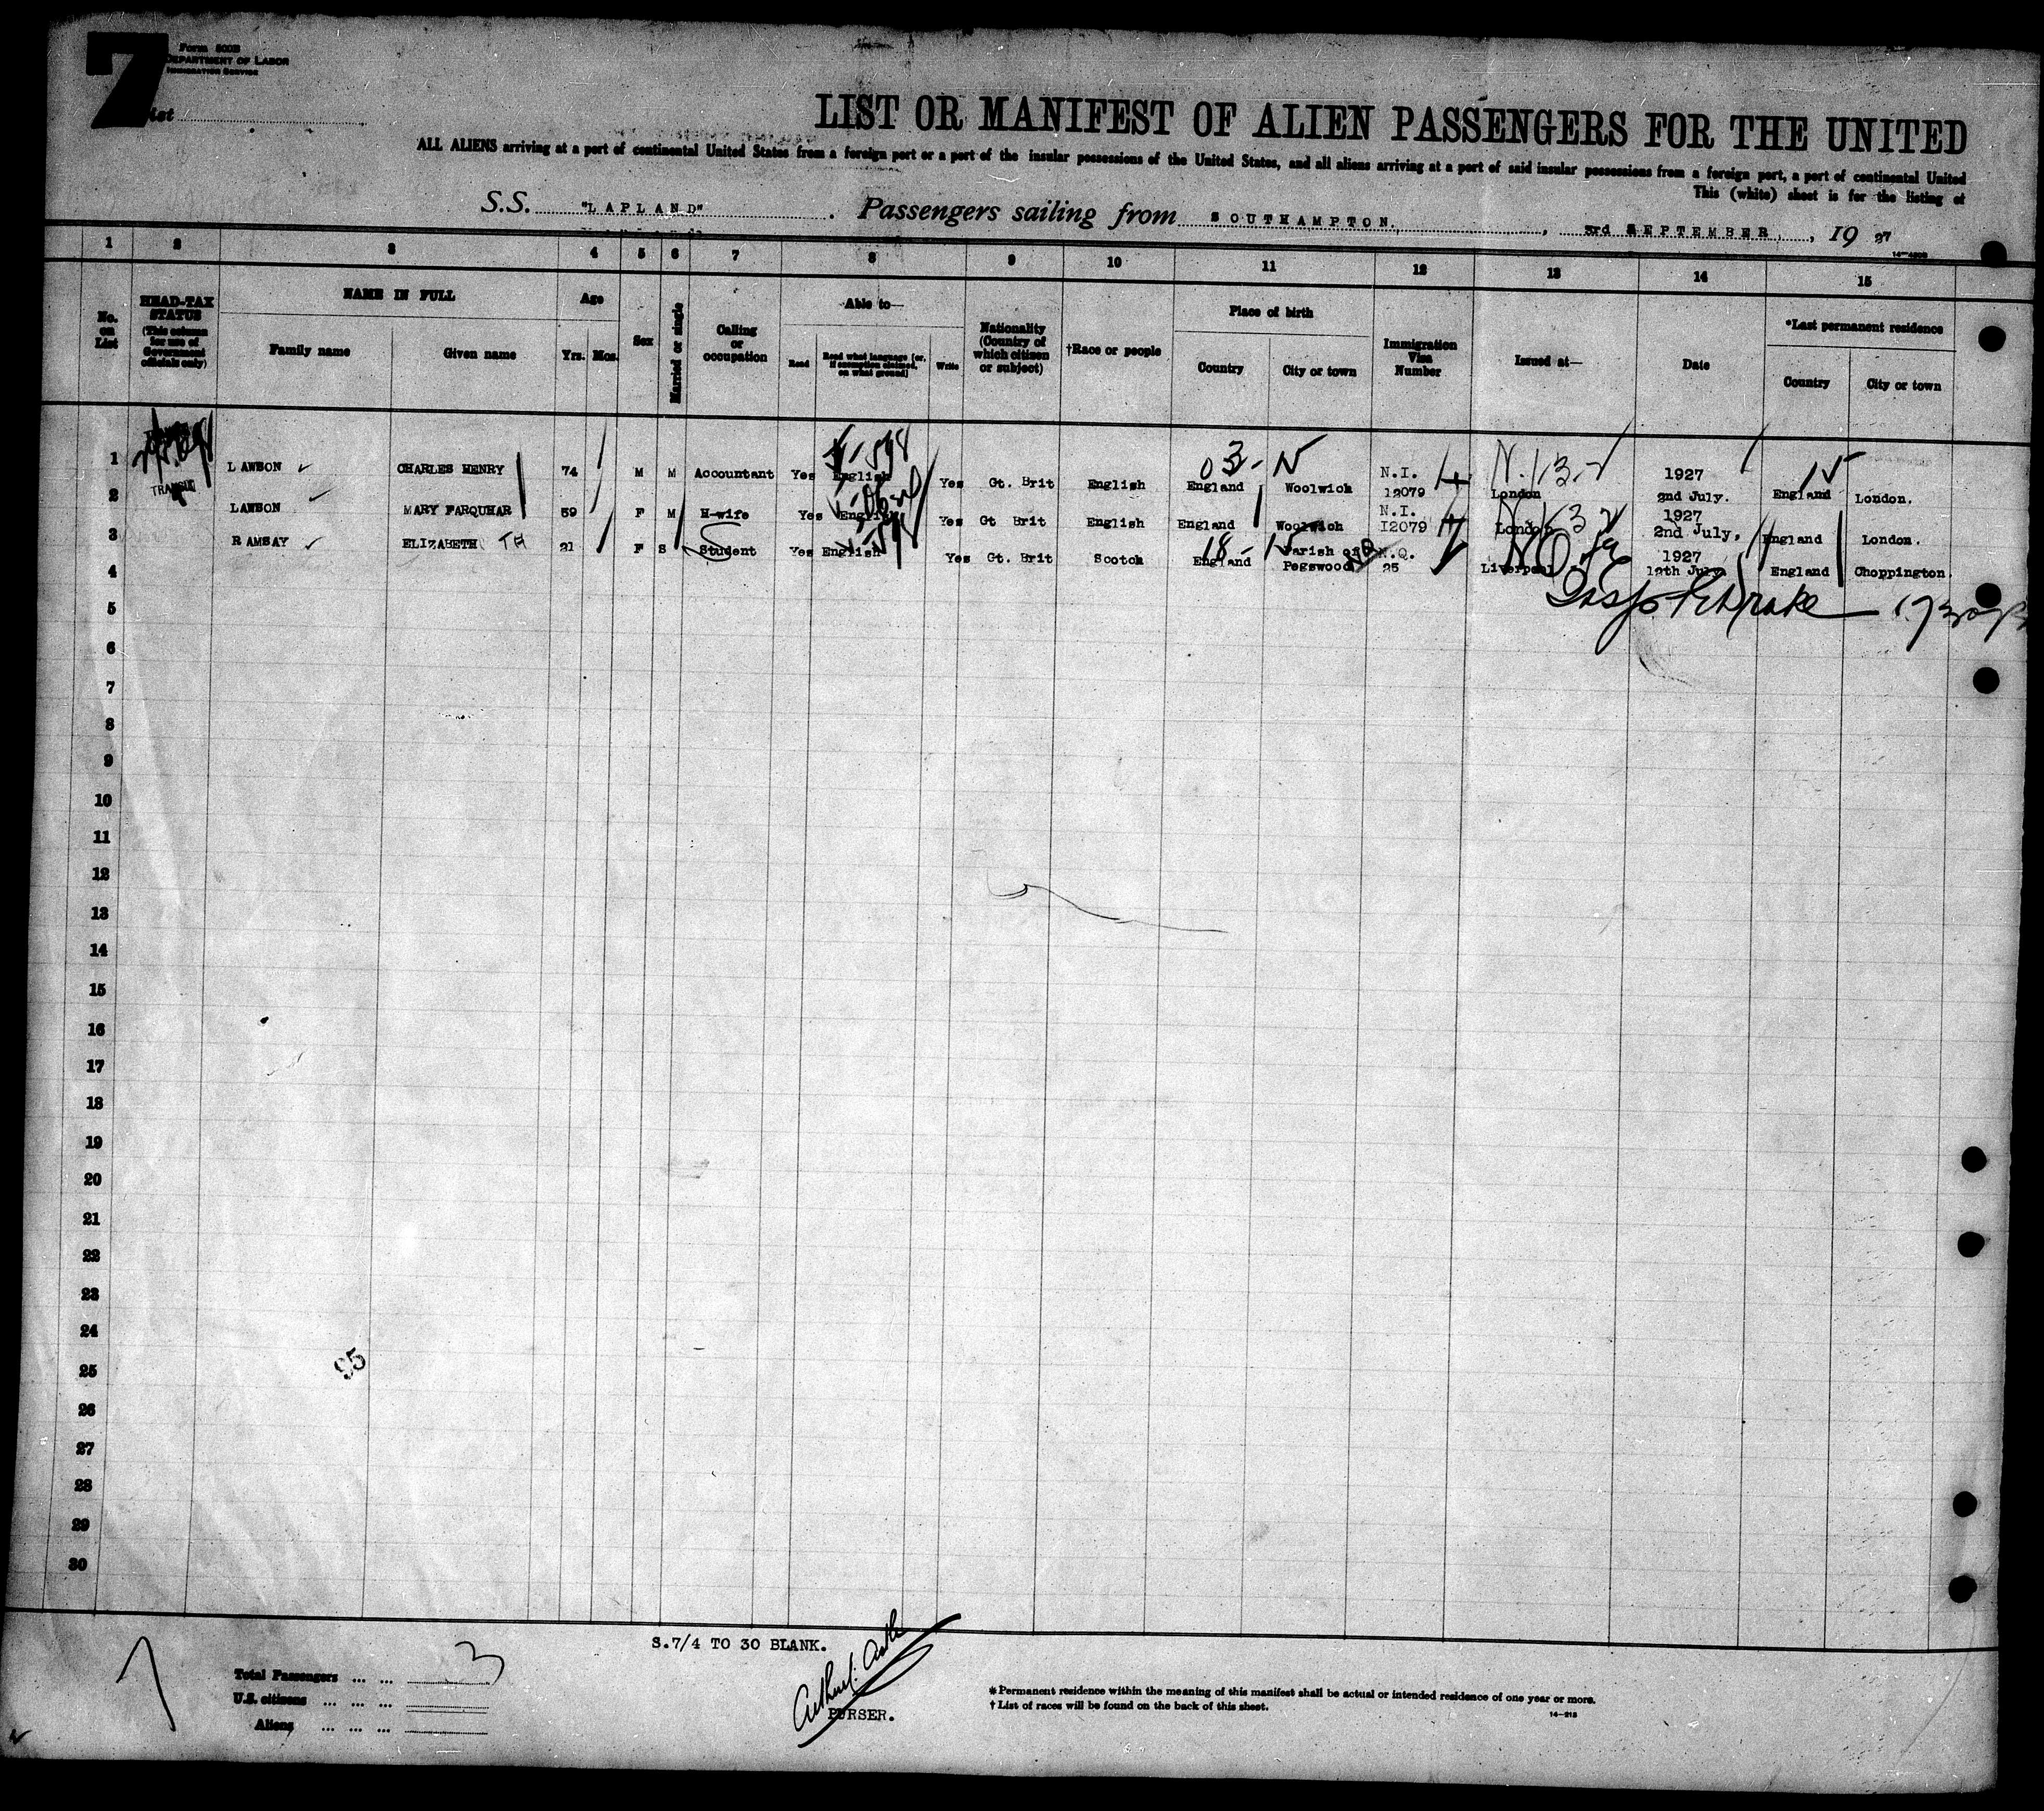 7
Form 500B
DEPARTMENT OF LABOR
IMMIGRATION SERVICE
List
LIST OR MANIFEST OF ALIEN PASSENGERS FOR THE UNITED
ALL ALIENS arriving at a port of continental United States from a foreign port or a port of the insular possessions of the United States, and all aliens arriving at a port of said insular possessions from a foreign port, a port of continental United
This (white) sheet is for the listing of
S.S. "LAPLAND". Passengers sailing from SOUTHAMPTON., 3rd SEPTEMBER, 1927
1 2 3 4 5 6 7 8 9 10 11 12 13 14 15
No. on List
HEAD-TAX STATUS (This column for use of Government officials only)
NAME IN FULL
Family name
Given name
Age
Yrs. Mos.
Sex
Married or single
Calling or occupation
Able to—
Read
Read what language [or, if exemption claimed, on what ground]
Write
Nationality (Country of which citizen or subject)
†Race or people
Place of birth
Country
City or town
Immigration Visa Number
Issued at—
Date
*Last permanent residence
Country
City or town
1 LAWSON CHARLES HENRY 74 M M Accountant Yes English Yes Gt. Brit English England Woolwich N.I. 12079 London 1927 2nd July. England London.
TRANSIT
2 LAWSON MARY FARQUHAR 59 F M H-wife Yes English Yes Gt Brit English England Woolwich N.I. I2079 London 1927 2nd July, England London.
3 RAMSAY ELIZABETH TH 21 F S Student Yes English Yes Gt. Brit Scotch England Parish of Pegswood N.Q. 25 Liverpool 1927 12th July England Choppington
4
5
6
7
8
9
10
11
12
13
14
15
16
17
18
19
20
21
22
23
24
25
26
27
28
29
30
95
S.7/4 TO 30 BLANK.
7
Total Passengers ... ... 3
U.S. citizens ... ... ...
Aliens ... ... ...
PURSER.
* Permanent residence within the meaning of this manifest shall be actual or intended residence of one year or more.
† List of races will be found on the back of this sheet.
14—213